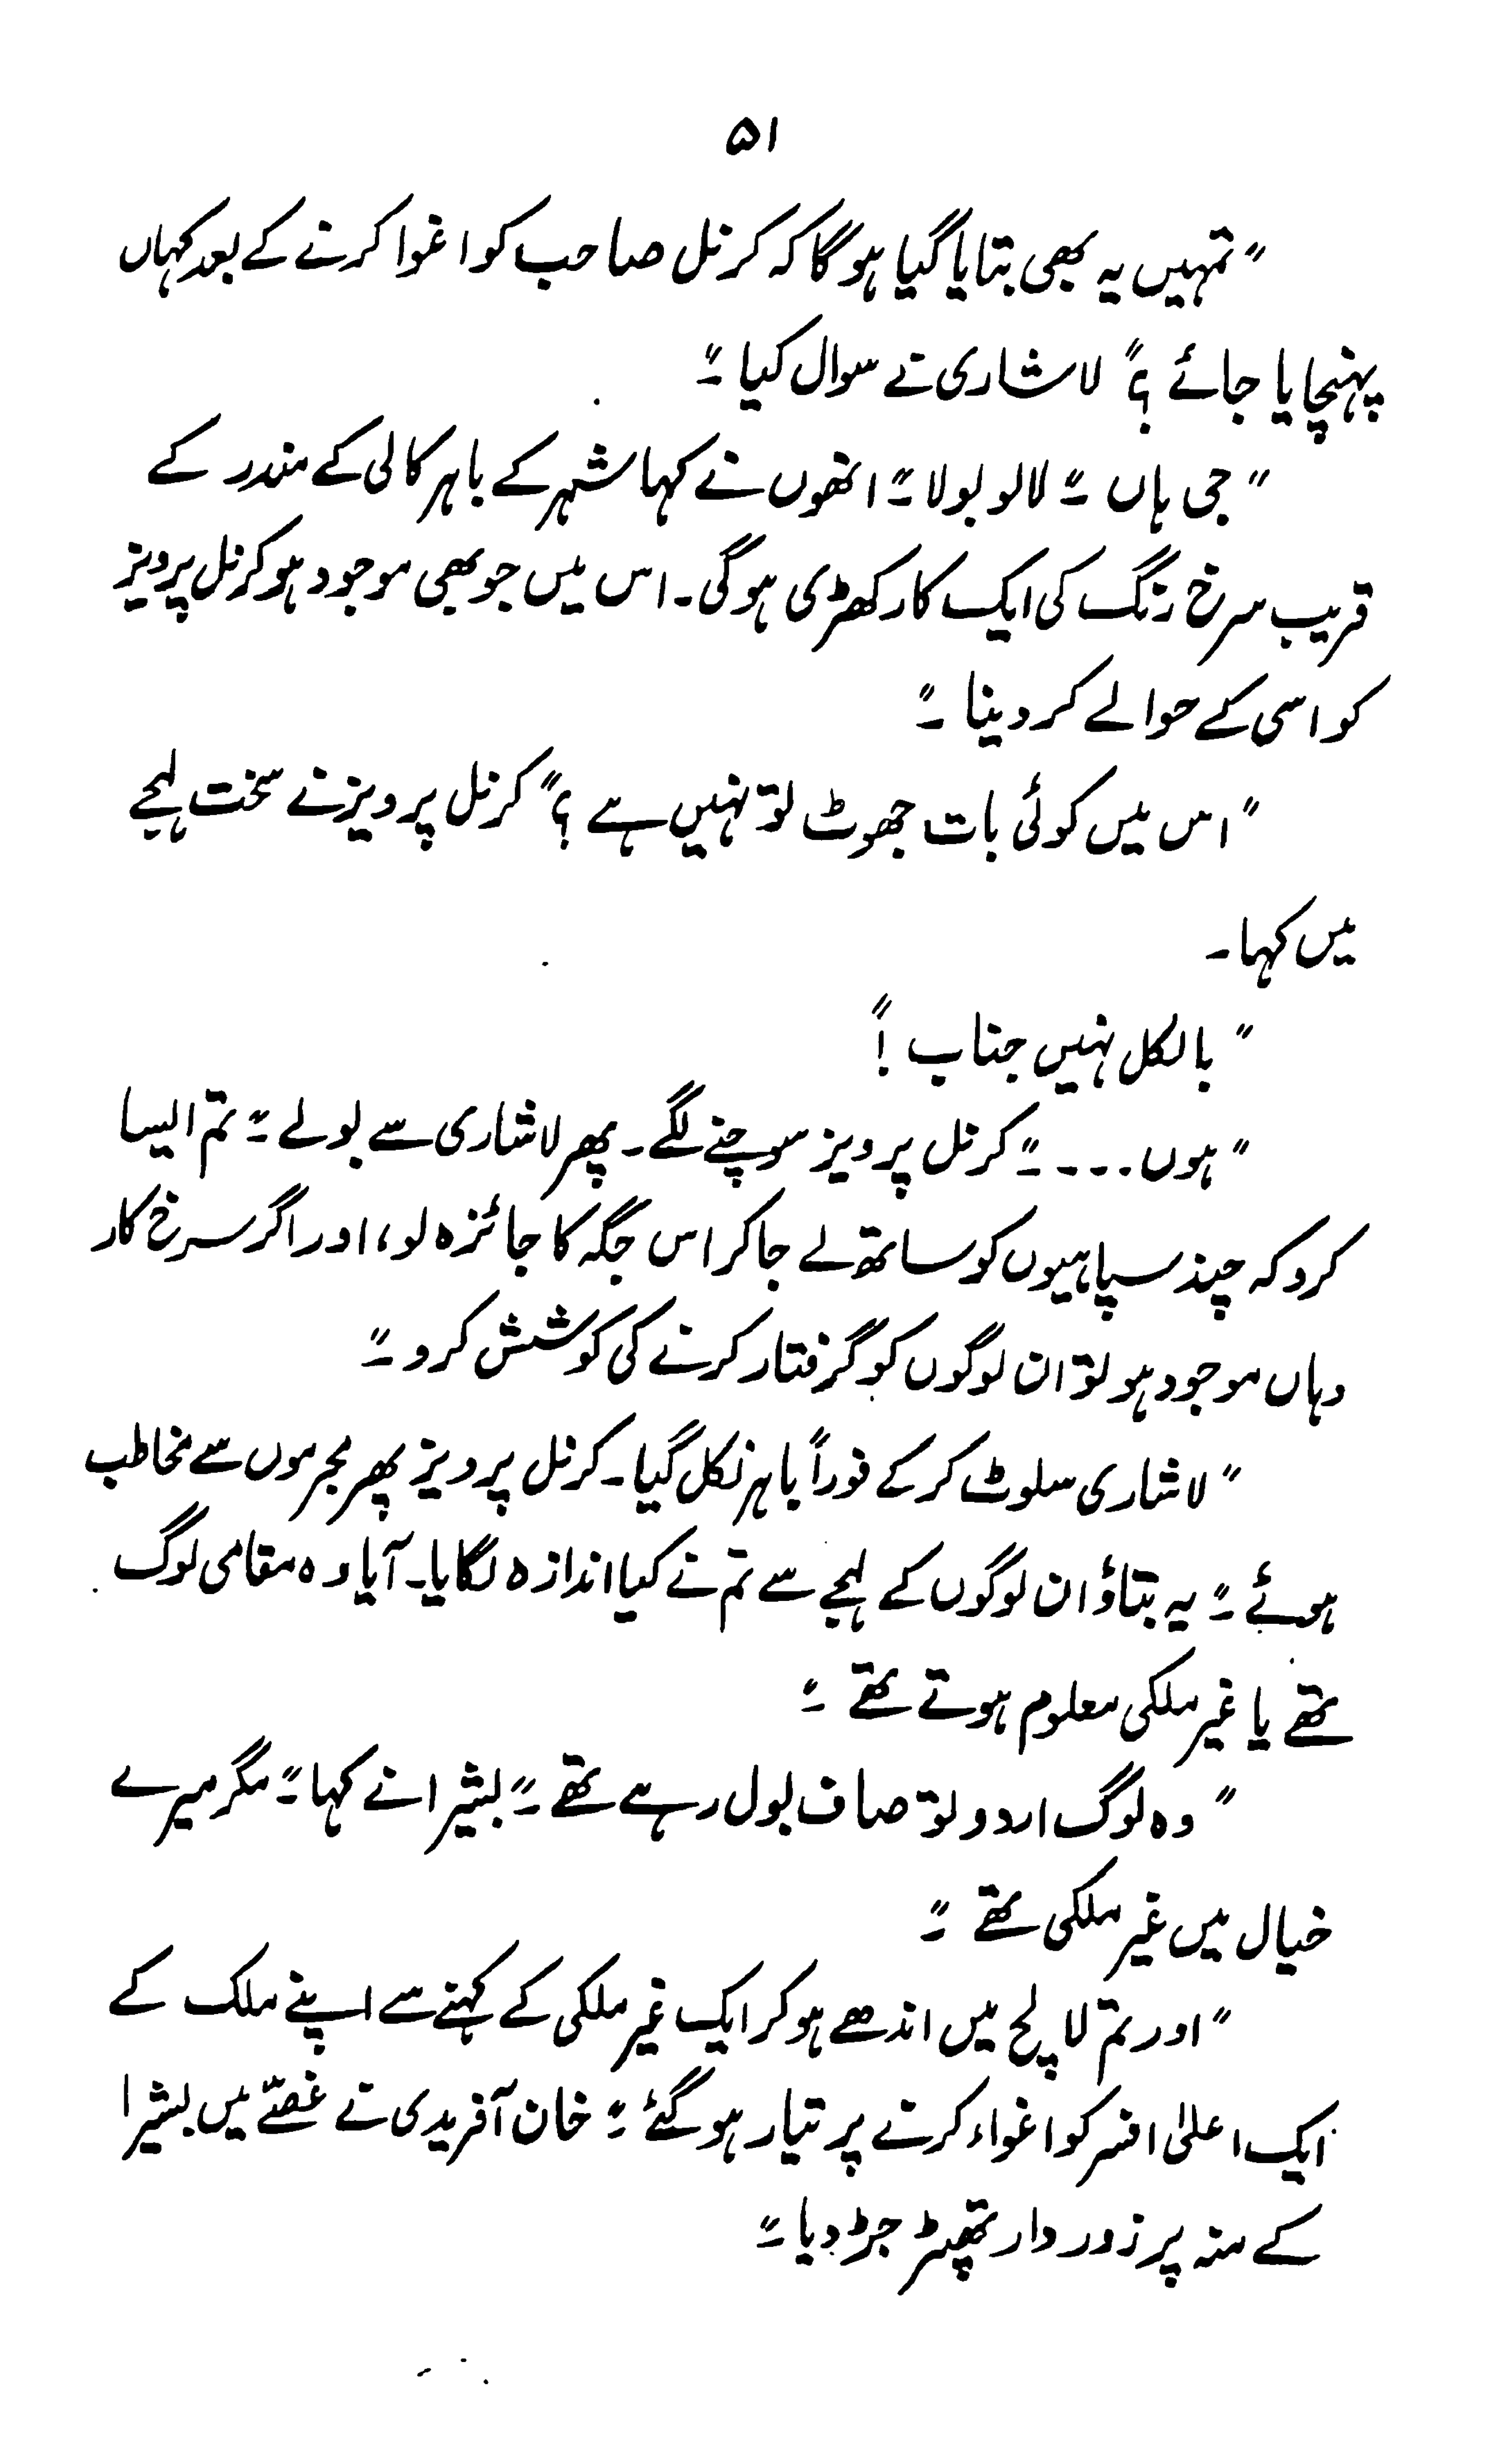 ۵۱
"تمہیں یہ بھی بتایا گیا ہوگا کہ کرنل صاحب کو اغوا کرنے کے بعد کہاں
پہنچایا جائے؟" لاشاری نے سوال کیا۔"
"جی ہاں۔" لالو بولا۔" انھوں نے کہا شہر کے باہر کالی کے مندر کے
قریب سرخ رنگ کی ایک کار کھڑی ہوگی۔ اس میں جو بھی موجود ہو کرنل پرویز
کو اسی کے حوالے کر دینا۔"
"اس میں کوئی بات جھوٹ تو نہیں ہے؟" کرنل پرویز نے سخت لہجے
میں کہا۔
"بالکل نہیں جناب!"
"ہوں۔۔۔۔" کرنل پرویز سوچنے لگے۔ پھر لاشاری سے بولے۔" تم ایسا
کرو کہ چند سپاہیوں کو ساتھ لے جا کر اس جگہ کا جائزہ لو، اور اگر سرخ کار
وہاں موجود ہو تو ان لوگوں کو گرفتار کرنے کی کوشش کرو۔"
"لاشاری سلوٹ کر کے فوراً باہر نکل گیا۔ کرنل پرویز پھر مجرموں سے مخاطب
ہوئے۔" یہ بتاؤ ان لوگوں کے لہجے سے تم نے کیا اندازہ لگایا۔ آیا وہ مقامی لوگ
تھے یا غیر ملکی معلوم ہوتے تھے۔"
"وہ لوگ اردو تو صاف بول رہے تھے۔" بشیرا نے کہا۔" مگر میرے
خیال میں غیر ملکی تھے۔"
"اور تم لالچ میں اندھے ہو کر ایک غیر ملکی کے کہنے سے اپنے ملک کے
ایک اعلیٰ افسر کو اغواء کرنے پر تیار ہو گئے۔" خان آفریدی نے غصّے میں بشیرا
کے منہ پر زور دار تھپڑ جڑ دیا۔"